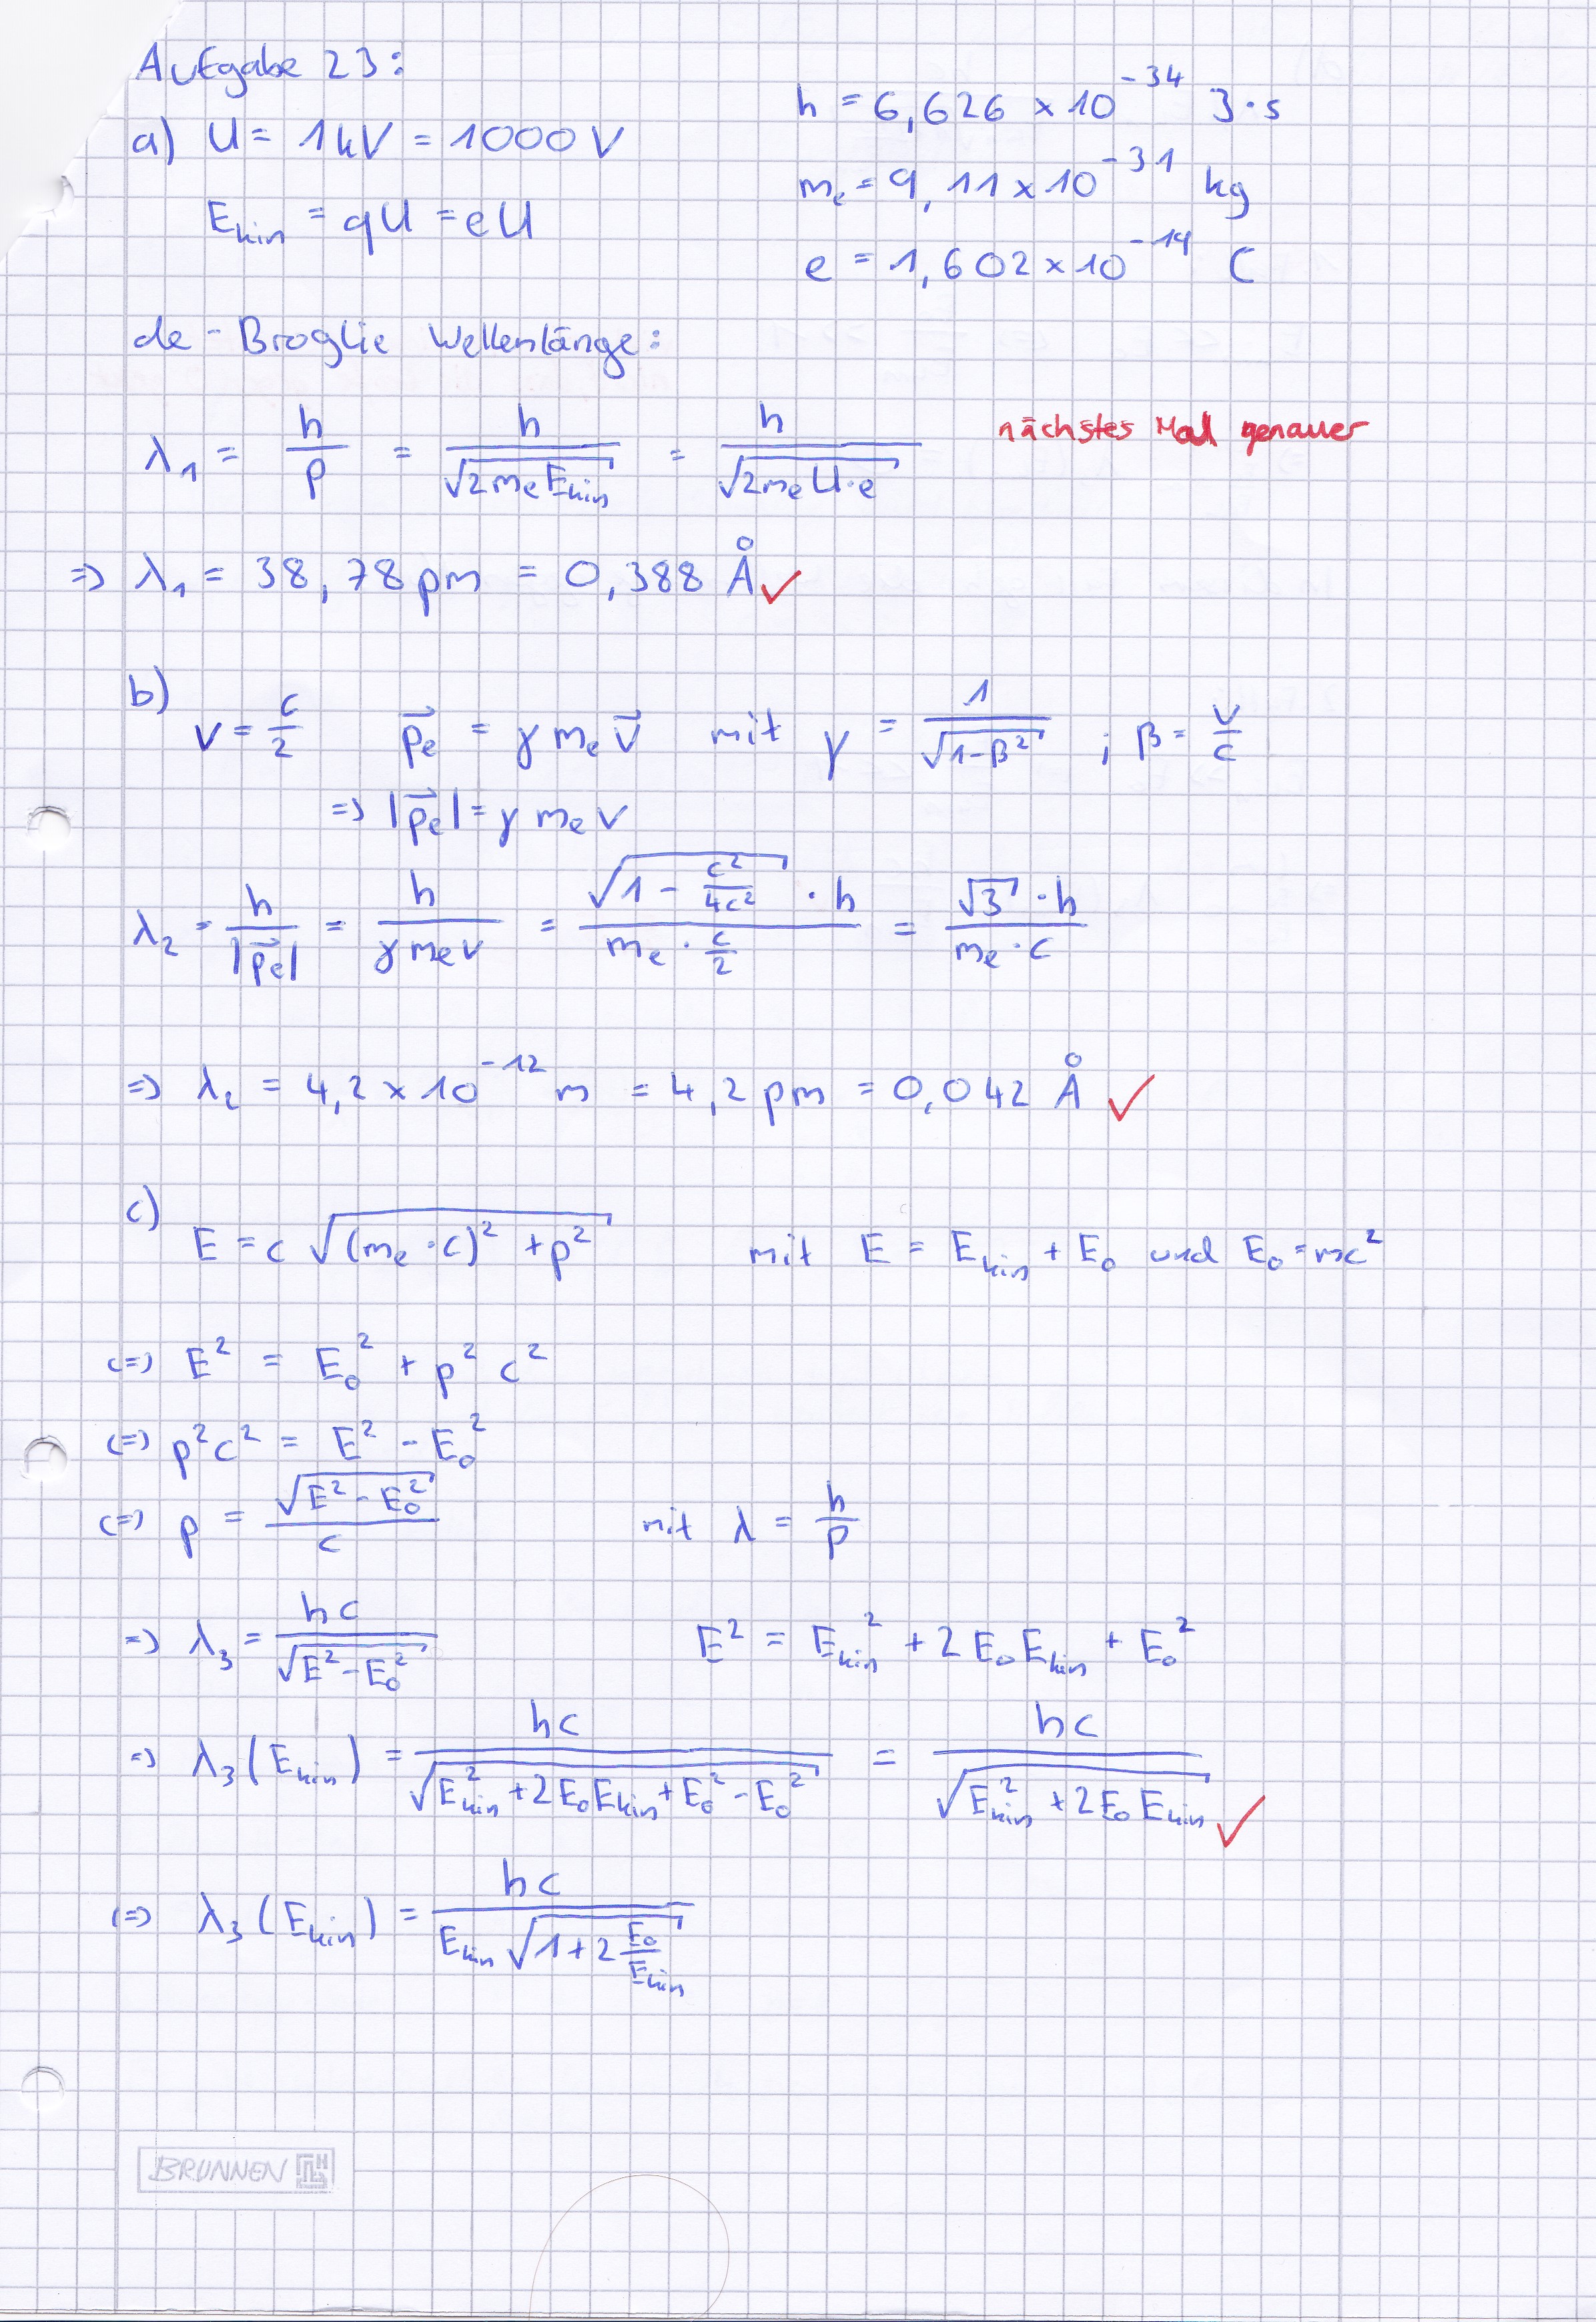 Aufgabe 23:
a) U = 1kV = 1000 V
h = 6,626 × 10^-34 J·s
m_e = 9,11 × 10^-31 kg
E_kin = qU = eU
e = 1,602 × 10^-19 C
de-Broglie Wellenlänge:
λ_1 = h/p = h/√(2m_e E_kin) = h/√(2m_e U·e)
nächstes Mal genauer
=> λ_1 = 38,78 pm = 0,388 Å ✓
b) v = c/2 p⃗_e = γ m_e v⃗ mit γ = 1/√(1-β²) ; β = v/c
=> |p⃗_e| = γ m_e v
λ_2 = h/|p⃗_e| = h/(γ m_e v) = (√(1 - c²/4c²) · h)/(m_e · c/2) = (√3 · h)/(m_e · c)
=> λ_2 = 4,2 × 10^-12 m = 4,2 pm = 0,042 Å ✓
c) E = c √((m_e · c)² + p²) mit E = E_kin + E_0 und E_0 = mc²
<=> E² = E_0² + p² c²
<=> p²c² = E² - E_0²
<=> p = √(E² - E_0²)/c mit λ = h/p
=> λ_3 = hc/√(E² - E_0²) E² = E_kin² + 2 E_0 E_kin + E_0²
=> λ_3 (E_kin) = hc/√(E_kin² + 2 E_0 E_kin + E_0² - E_0²) = hc/√(E_kin² + 2 E_0 E_kin) ✓
<=> λ_3 (E_kin) = hc/(E_kin √(1 + 2 E_0/E_kin))
BRUNNEN